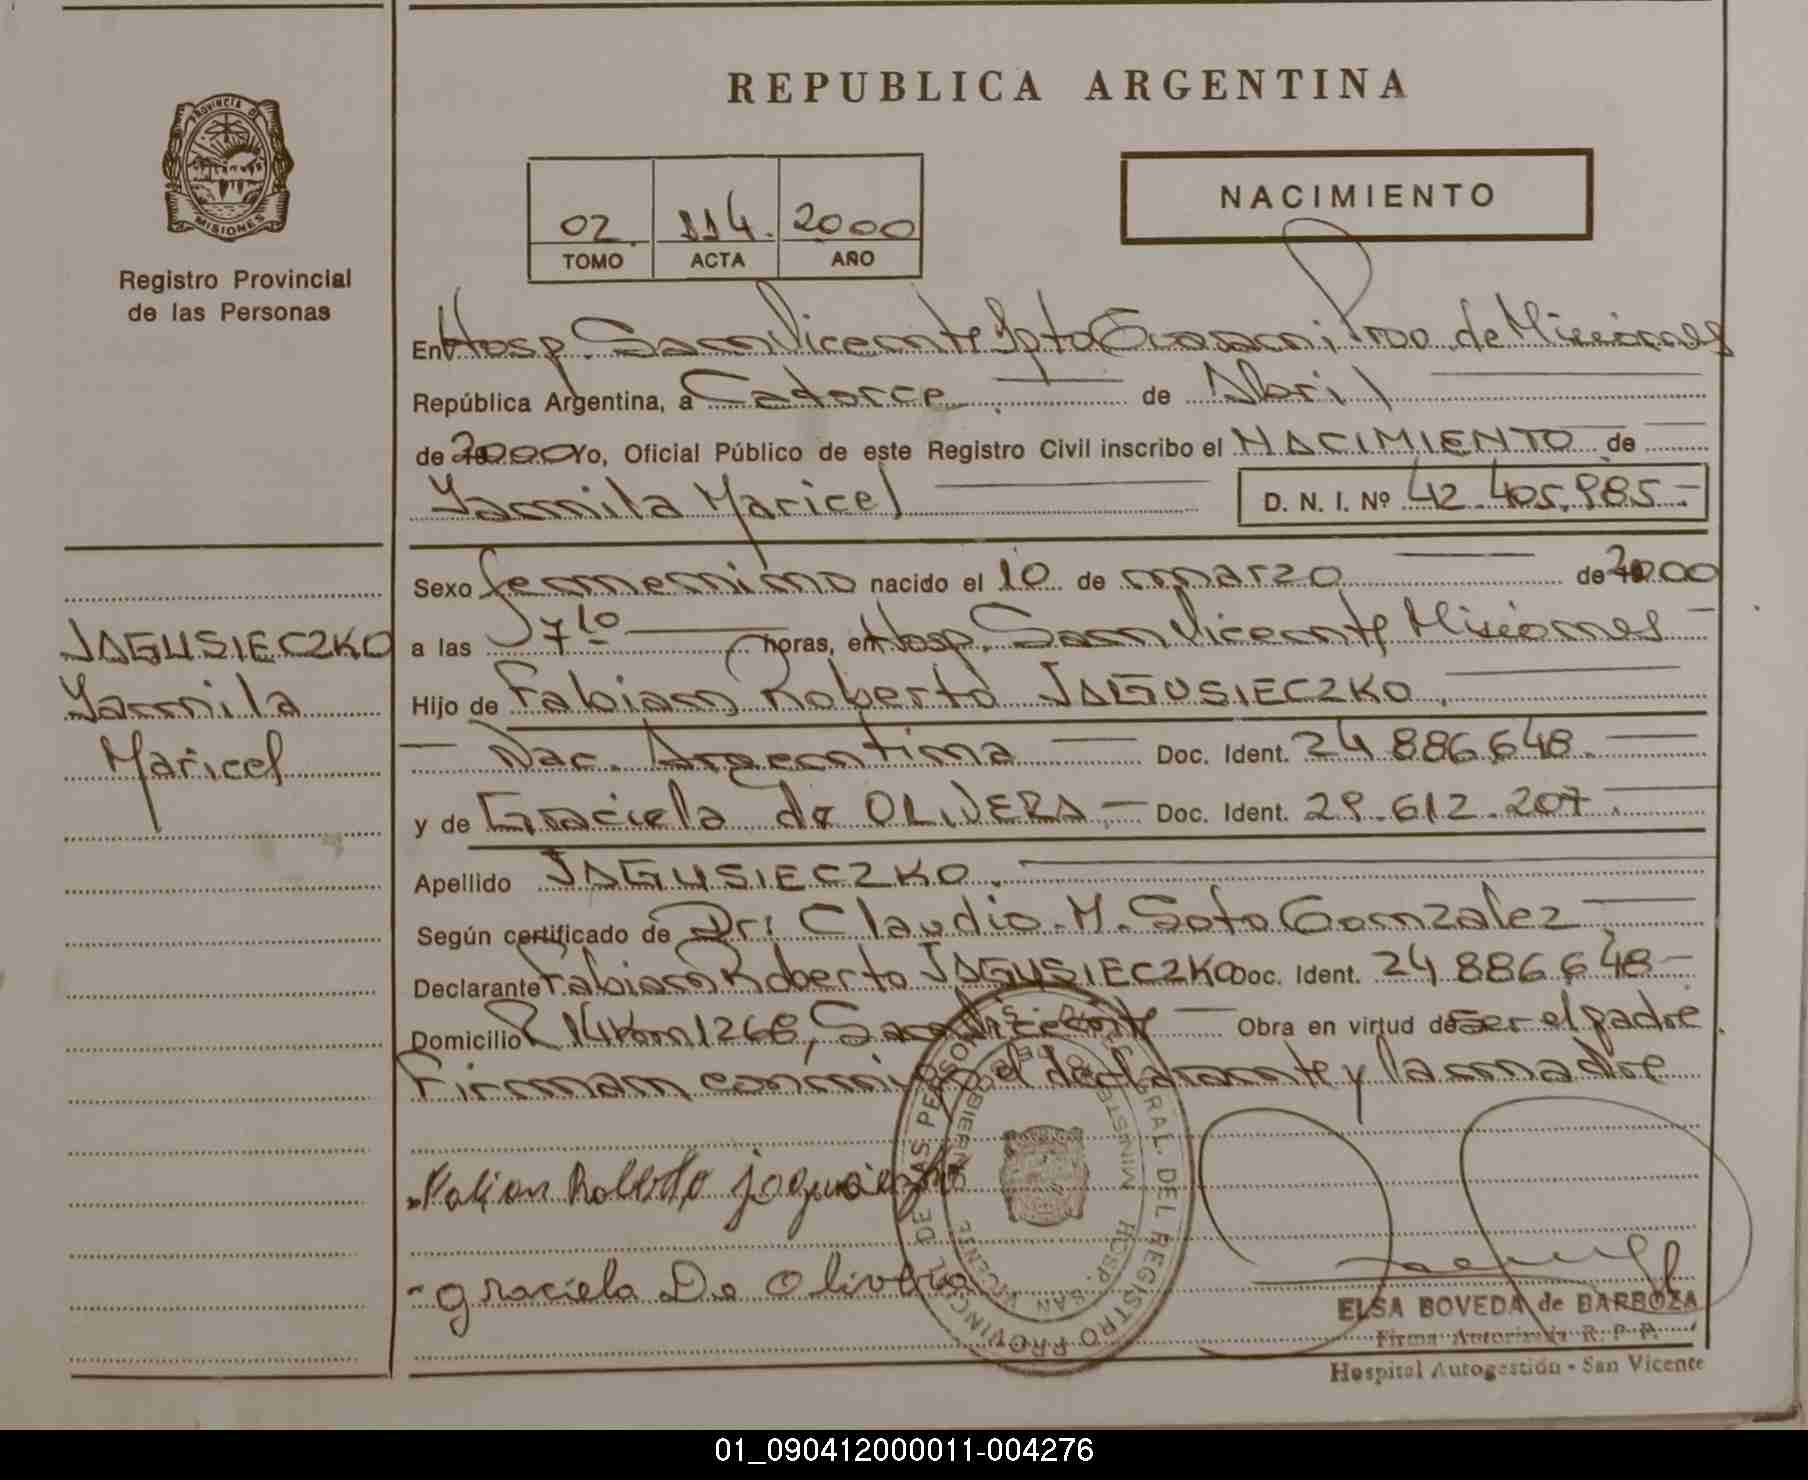 REPUBLICA ARGENTINA
PROVINCIA DE MISIONES
Registro Provincial
de las Personas
NACIMIENTO
02 114. 2000
TOMO ACTA AÑO
En Hosp. San Vicente Dpto Guarani Prov. de Misiones
República Argentina, a Catorce de Abril
de 2000 Yo, Oficial Público de este Registro Civil inscribo el NACIMIENTO de
Yamila Maricel D. N. I. Nº 42.405.985.-
JAGUSIECZKO
Yamila
Maricel
Sexo femenino nacido el 10 de marzo de 2000
a las 17 10 horas, en Hosp. San Vicente Misiones
Hijo de Fabian Roberto JAGUSIECZKO.
Nac. Argentina Doc. Ident. 24 886 648.
y de Graciela de OLIVERA.- Doc. Ident. 29.612.207.
Apellido JAGUSIECZKO.
Según certificado de Dr: Claudio.M. Soto Gonzalez
Declarante Fabian Roberto JAGUSIECZKO Doc. Ident. 24 886 648-
Domicilio R 14 Km 1268, San Vicente Obra en virtud de Ser el padre.
Firman conmigo el declarante y la madre
Fabian Roberto jagusieczko
- graciela De Olivera
REGISTRO PROVINCIAL DE LAS PERSONAS
HOSP. SAN VICENTE
ELSA BOVEDA de BARBOZA
Firma Autorizada R. P. P.
Hospital Autogestión - San Vicente
01_090412000011-004276